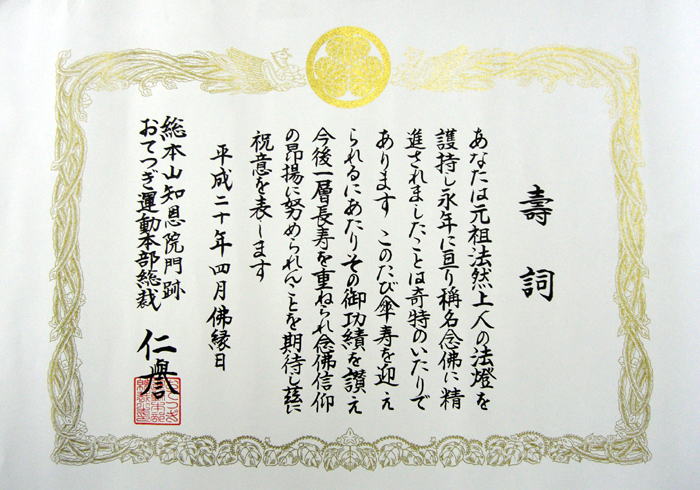 壽詞
あなたは元祖法然上人の法燈を
護持し永年に亘り稱名念佛に精
進されましたことは奇特のいたりで
あります このたび傘寿を迎え
られるにあたりその御功績を讃え
今後一層長寿を重ねられ念佛信仰
の昂揚に努められんことを期待し茲に
祝意を表します
平成二十年四月佛縁日
総本山知恩院門跡
おてつぎ運動本部総裁
仁譽